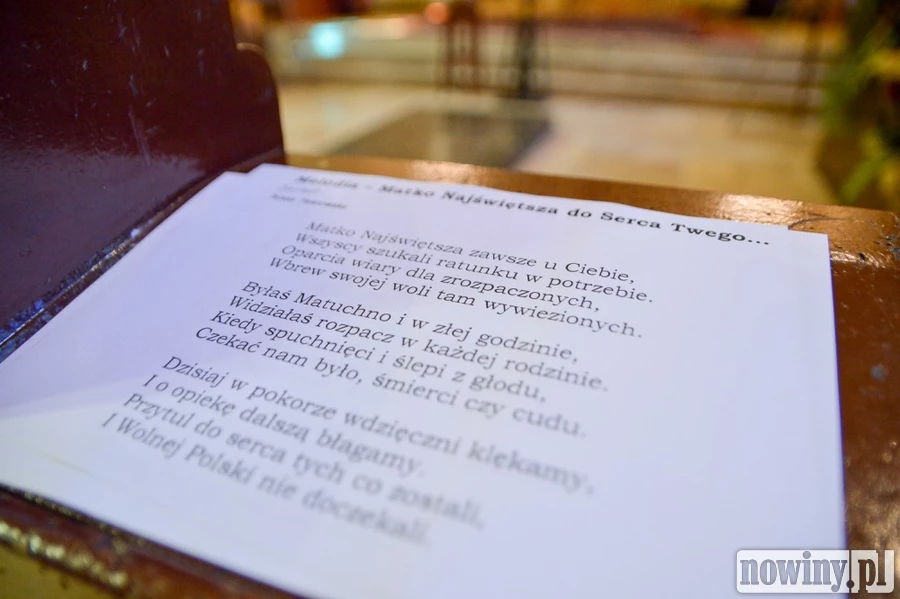 Melodia – Matko Najświętsza do Serca Twego...
Matko Najświętsza zawsze u Ciebie,
Wszyscy szukali ratunku w potrzebie.
Oparcia wiary dla zrozpaczonych,
Wbrew swojej woli tam wywiezionych.
Byłaś Matuchno i w złej godzinie,
Widziałaś rozpacz w każdej rodzinie.
Kiedy spuchnięci i ślepi z głodu,
Czekać nam było, śmierci czy cudu.
Dzisiaj w pokorze wdzięczni klękamy,
I o opiekę dalszą błagamy.
Przytul do serca tych co zostali,
I Wolnej Polski nie doczekali.
nowiny.pl